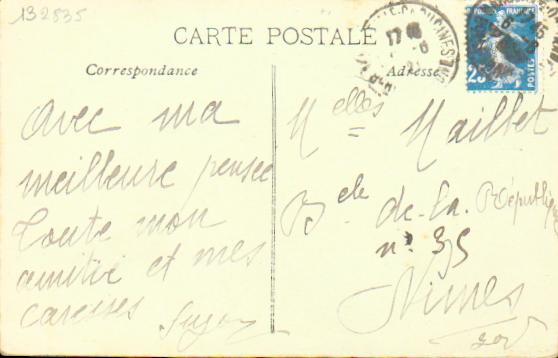 132535
CARTE POSTALE
Correspondance
Adresse
Avec ma
meilleure pensée
Toute mon
amitié et mes
caresses
Melles Maillet
Bd de la République
n° 35
Nimes
Gard
POSTES